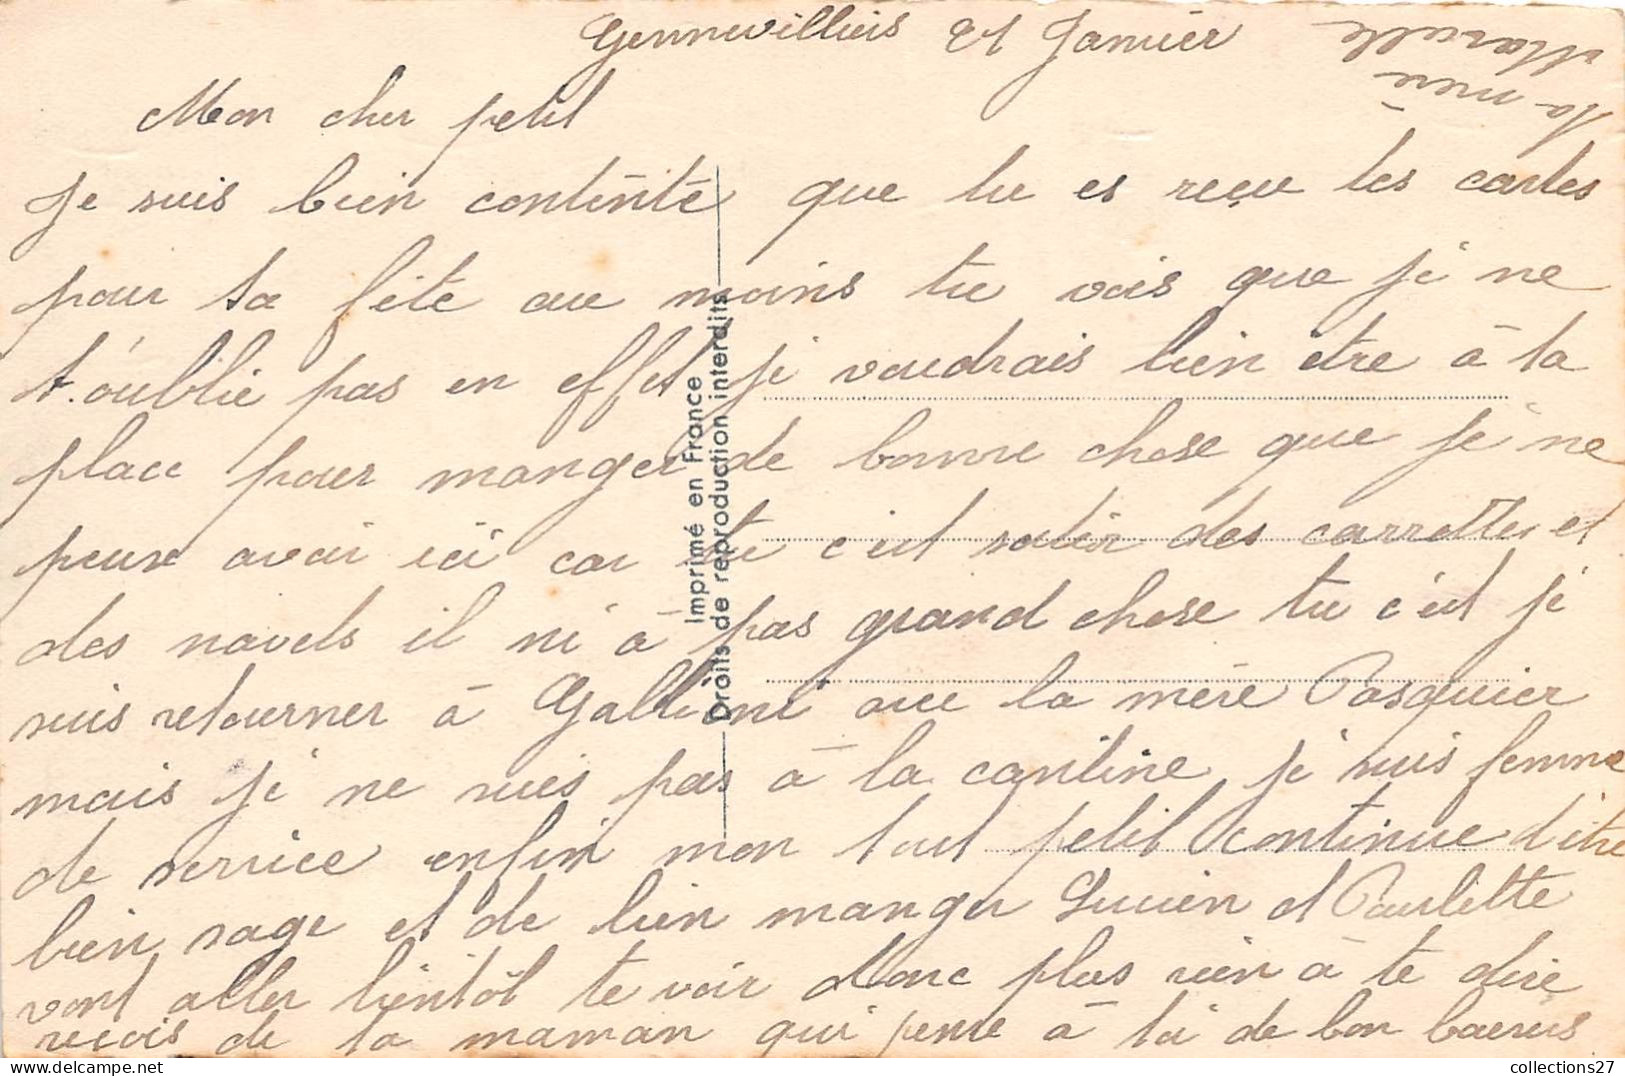 Gennevilliers 21 Janvier
Mon cher petit
Je suis bien contente que tu es reçue les cartes
pour ta fête au moins tu vois que je ne
t'oublie pas en effet je voudrais bien etre à ta
place pour manger de bonne chose que je ne
peux avoir ici car tu c'est des carrottes et
des navets il ni à pas grand chose tu c'est je
suis retourner à Gallieni avec la mère Pasquier
mais je ne suis pas à la cantine je suis femme
de service enfin mon tout petit continue d'être
bien sage et de bien manger Lucien et Paulette
vont aller bientôt te voir donc plus rien à te dire
reçois de ta maman qui pense à toi de bon baerers
ta mère
Marcelle
Imprimé en France
Droits de reproduction interdits
collections27